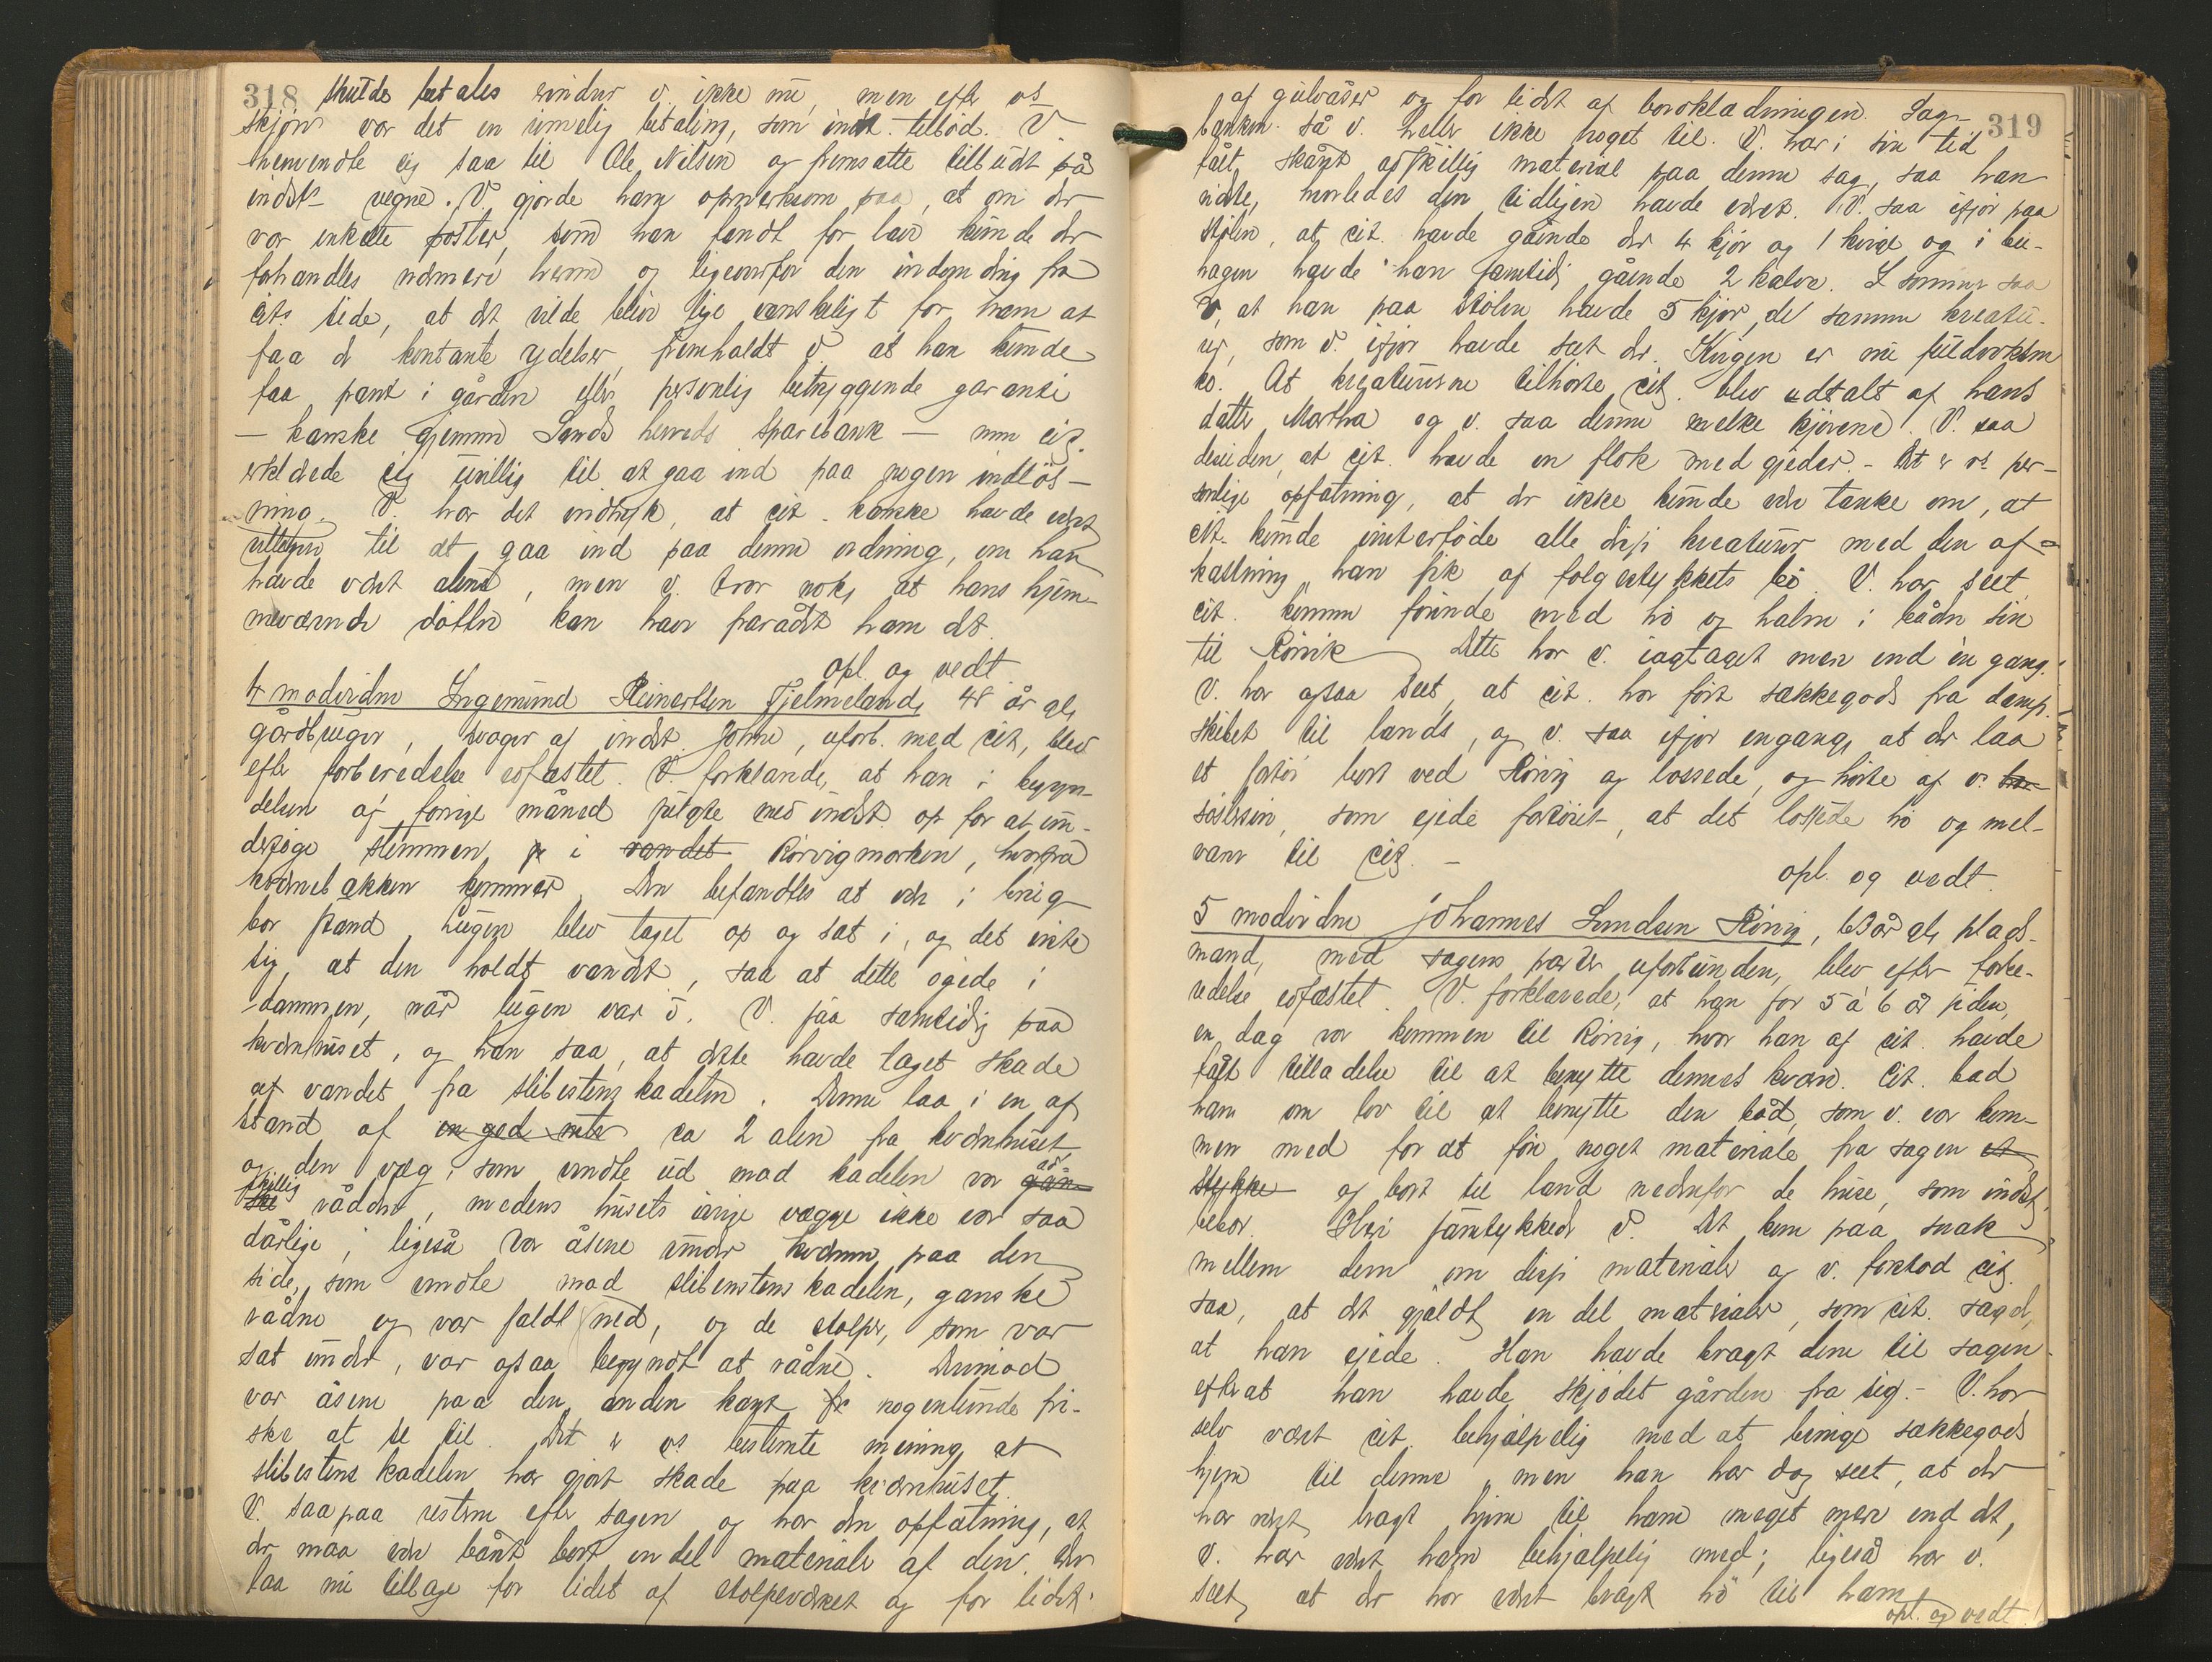 318 skulde betales erindrer v. ikke nu, men efter vs
skjøn var det en rimelig betaling, som indst. tilbød. V.
henvendte sig saa til Ole Nilsen og fremsatte tilbudt på
indsts vegne. V. gjorde ham opmerksom paa, at om der
var enkelte poster, som han fandt for lav kunde der
forhandles nærmere herom og ligeoverfor den indvending fra
cits side, at det vilde blive lige vanskeligt for ham at
faa de kontante ydelser, fremholdt v. at han kunde
faa pant i gården eller personlig betryggende garanti
— kanske gjennem Sands herreds Sparebank — men cit.
erklærede sig uvillig til at gaa ind paa nogen indløs-
ning. V. har det indtryk, at cit. kanske havde været
villigere til at gaa ind paa denne ordning, om han
havde været alene, men v. tror nok, at hans hjem-
meværende døttre kan have fraraadet ham det.
opl. og vedt.
4 modvidne Ingemund Reinertsen Fjelmeland, 48 år gl,
gårdbruger, svoger af indst. Johne, uforb. med cit, blev
efter forberedelse edfæstet. V. forklarede, at han i begyn-
delsen af forrige måned fulgte med indst. op for at un-
dersøge stemmen i vandet Rörvigmarken, hvorfra
kværnebækken kommer. Den befandtes at være i brug-
bar stand. Lugen blev taget op og sat i, og det viste
sig, at den holdt vandet, saa at dette øgede i
dammen, når lugen var i. V. saa samtidig paa
kværnhuset, og han saa, at dette havde taget skade
af vandet fra slibestenskadelen. Denne laa i en af-
stand af en god meter ca 2 alen fra kværnhuset
og den væg, som vendte ud mod kadelen var gan- ad-
ske skillig rådden, medens husets øvrige vægge ikke var saa
dårlige, ligeså var åsene under kværnen paa den
side, som vendte mod slibestenskadelen, ganske
rådne og var faldt ned, og de stolper, som var
sat under, var ogsaa begyndt at rådne. Derimod
var åsene paa den anden kant nogenlunde fri-
ske at se til. Det er vs bestemte mening, at
slibestenskadelen har gjort skade paa kværnhuset.
V. saa paa resterne efter sagen og har den opfatning, at
der maa være båret bort en del materialer af den. Der
laa nu tilbage for lidet af stolpeværket og for lidet
af gulvåser og for lidet af bordkladningen. Sag- 319
bænken så v. heller ikke noget til. V. har i sin tid
fået skåret adskillig material paa denne sag, saa han
vidste, hvorledes den tidligere havde været. V. saa ifjor paa
Stølen, at cit. havde gående der 4 kjør og 1 kvige og i bu-
hagen havde han samtidig gående 2 kalve. I sommer saa
v, at han paa Stølen havde 5 kjør, de samme kreatu-
rer, som v. ifjor havde seet der. Kvigen er nu fuldvoksen
ko. At kreaturerne tilhørte cit. blev udtalt af hans
datter Martha og v. saa denne melke kjørene. V. saa
desuden, at cit. havde en flok med gjeder. - Det er vs per-
sonlige opfatning, at der ikke kunde være tanke om, at
cit. kunde vinterføde alle disse kreaturer med den af-
kastning han fik af følgestykkets hø. V. har seet
cit. komme forinde med hø og halm i båden sin
til Rörvik. Dette har v. iagtaget mere end én gang.
V. har ogsaa seet, at cit. har ført sækkegods fra damp-
skibet til lands, og v. saa ifjor engang, at der laa
et fartøi bort ved Rörvig og lossede, og hørte af vs
søstersøn, som ejede fartøiet, at det lossede hø og mel-
varer til cit. -
opl. og vedt.
5 modvidne Johannes Lendsen Rörvig, 63 år gl, plads-
mand, med sagens parter uforbunden, blev efter forbe-
redelse edfæstet. V. forklarede, at han for 5 à 6 år siden
en dag var kommen til Rörvig, hvor han af cit. havde
fået tilladelse til at benytte dennes kværn. Cit. bad
ham om lov til at benytte den båd, som v. var kom-
men med for at føre noget materiale fra sagen et
stykke og bort til land nedenfor de huse, som indst.
bebor. Heri samtykkede v. Det kom paa snak
mellem dem om disse materialer og v. forstod cit.
saa, at det gjældt en del materialer, som cit. sagde,
at han ejede. Han havde bragt dem til sagen
efterat han havde skjødet gården fra sig. - V. har
selv været cit. behjælpelig med at bringe sækkegods
hjem til denne, men han har dog seet, at der
har været bragt hjem til ham meget mere end det,
v. har været ham behjælpelig med; ligeså har v.
seet, at der har været bragt hø til ham.
opl. og vedt.